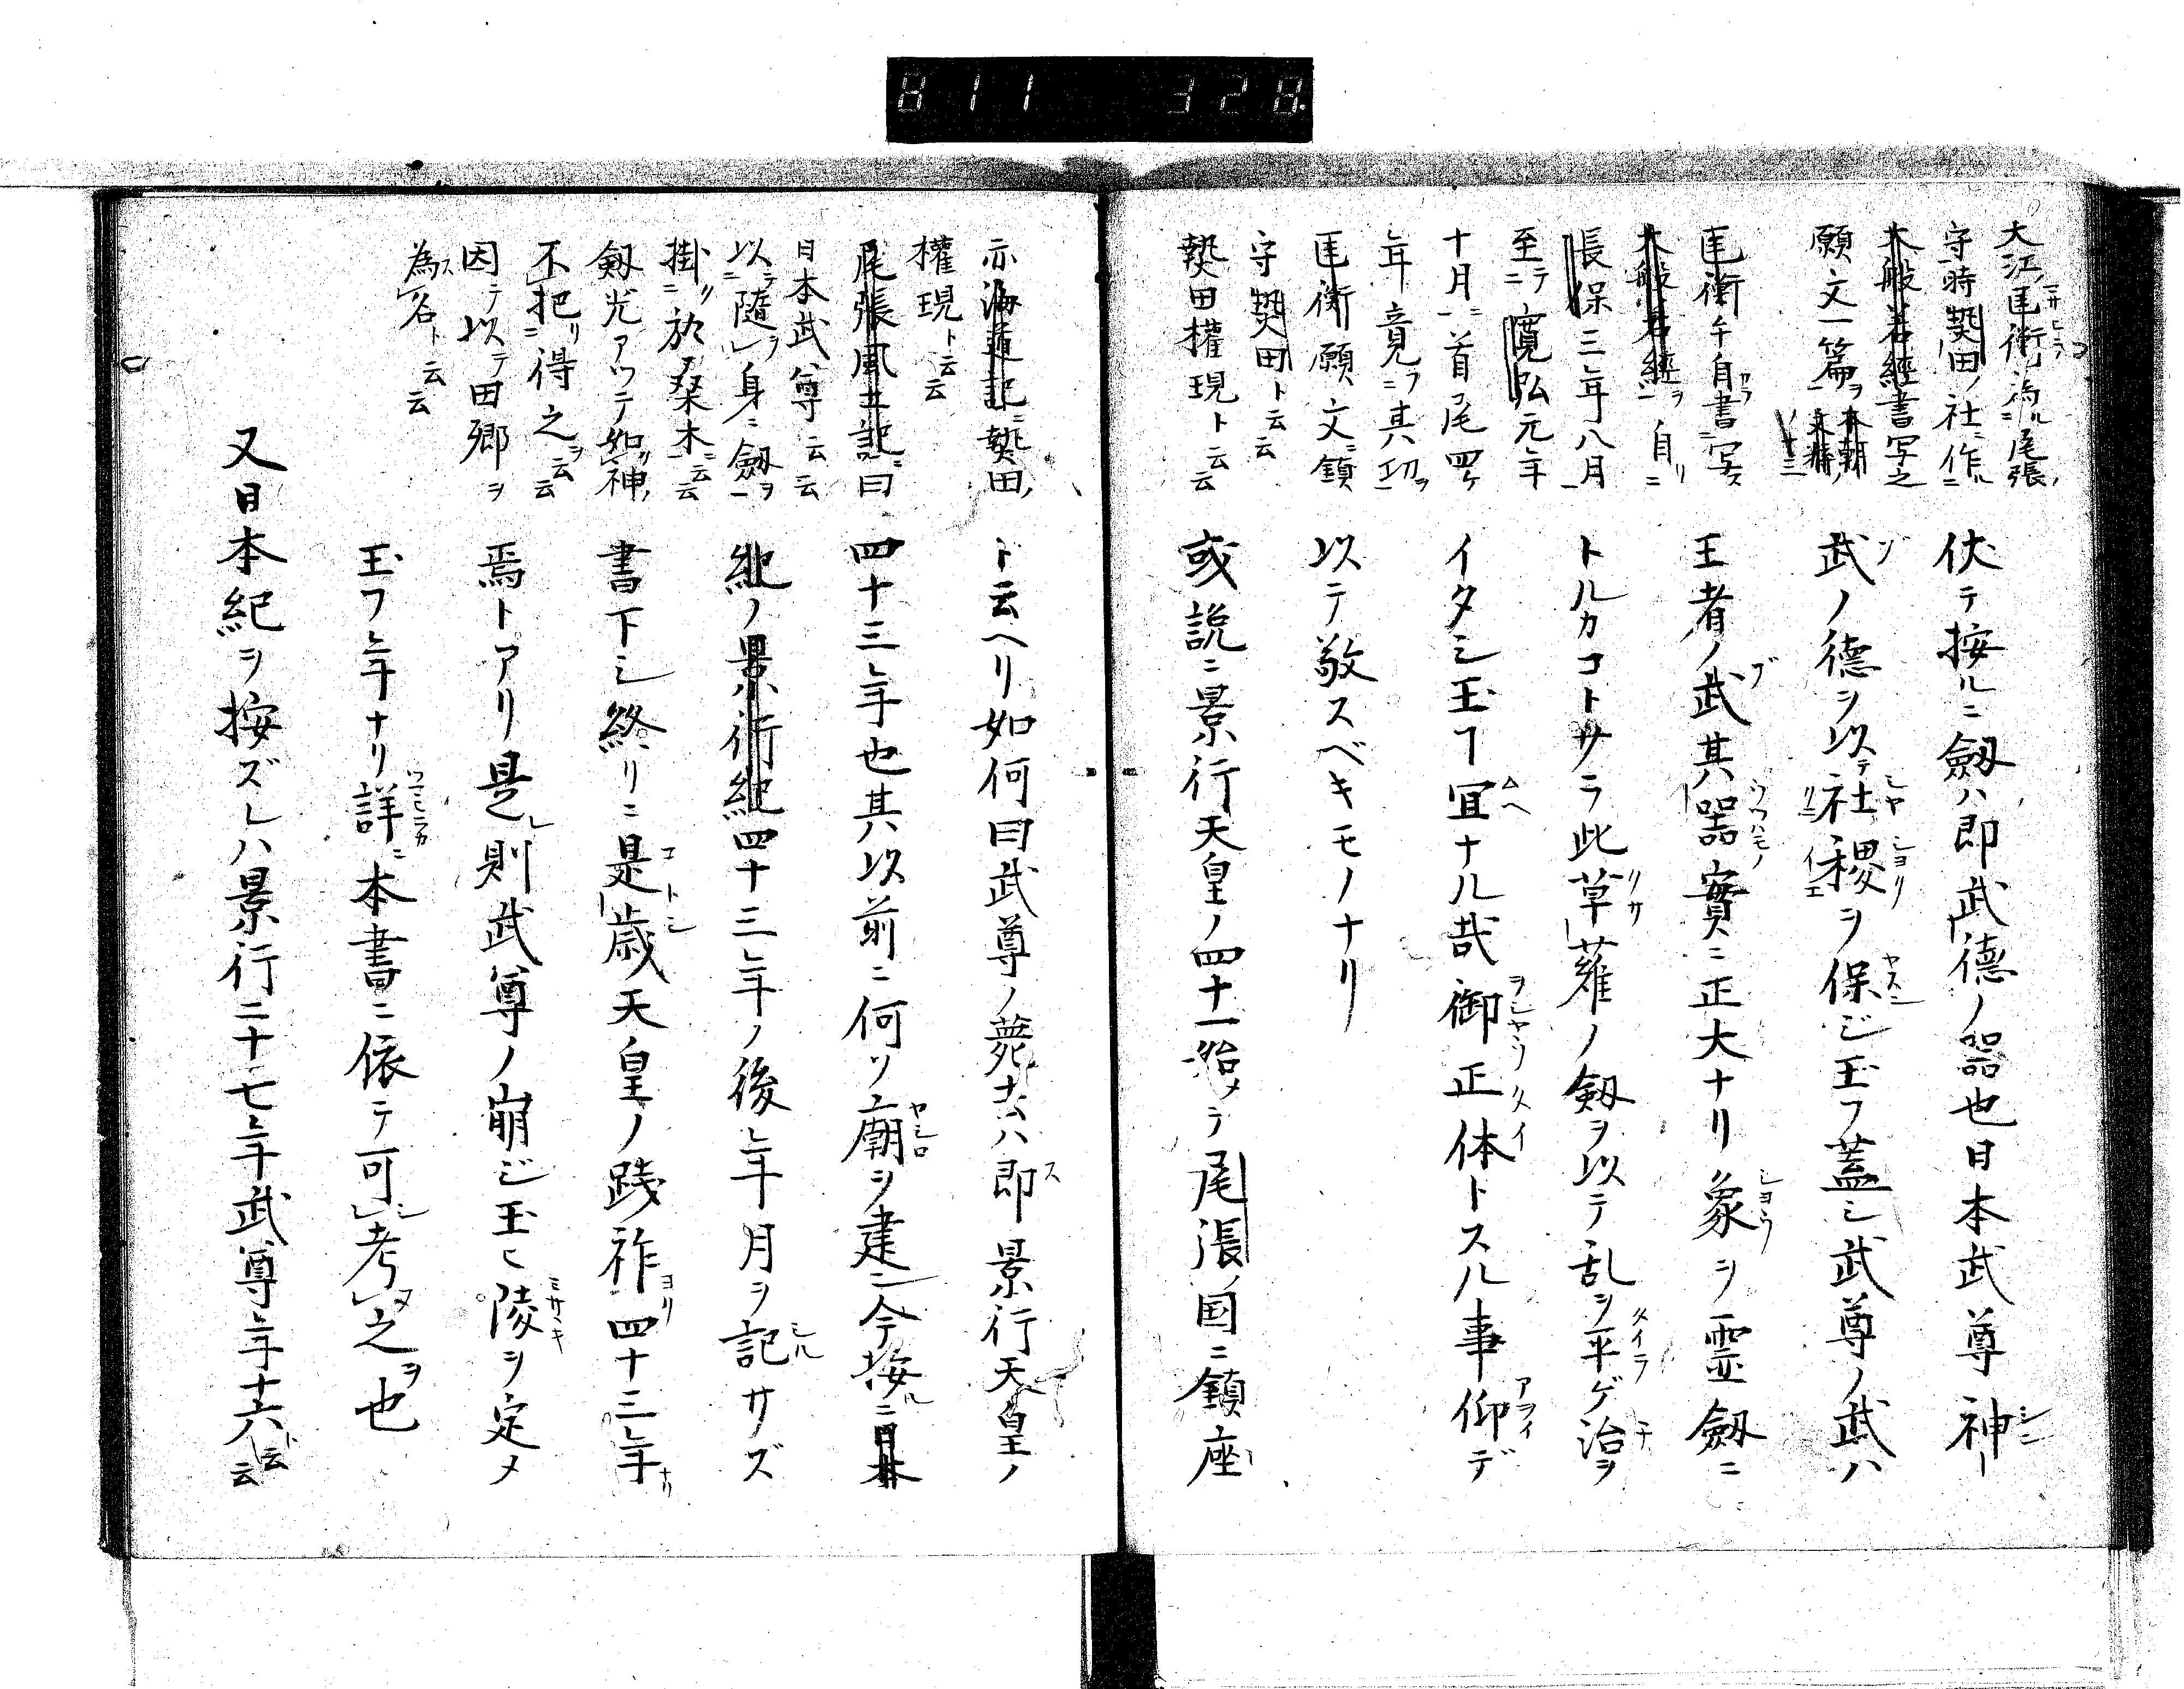 811 328
大江匡衡為ル尾張ノ
守時熱田ノ社ニ作ル
大般若経書写之
願文一篇ヲ本朝文粹ノ十三
匡衡手自書写ス
大般若経ヲ自リ
長保三年八月
至テ寛弘元年
十月ニ首尾四ケ
年竟フ其功ヲ
匡衡願文ニ鎮
守熱田ト云云
熱田権現ト云云
伏テ按ルニ剱ハ即武徳ノ器也日本武尊神
武ノ徳ヲ以テ社稷ヲ保ジ玉フ蓋シ武尊ノ武ハ
王者ノ武其器實ニ正大ナリ象ヲ霊剱ニ
トルカコトサラ此草薙ノ剱ヲ以テ乱ヲ平ゲ治ヲ
イタシ玉フ冝ナル哉御正体トスル事仰デ
以テ敬スベキモノナリ
或説ニ景行天皇ノ四十一始メテ尾張ノ国ニ鎮座
亦海道記ニ熱田ノ
權現ト云云
尾張風土記ニ曰
日本武尊云云
以テ隨ラ身ニ剱ヲ
掛リ於桑木ニ云云
剱光アツテ如神ノ
不把リ得之ヲ云云
因テ以テ田郷ヲ
為ス名ト云云
ト云ヘリ如何曰武尊ノ薨去ハ即景行天皇ノ
四十三年也其以前ニ何ソ廟ヲ建ン今按ルニ日本
紀ノ景行紀四十三年ノ後年月ヲ記サズ
書下シ終リニ是歳天皇ノ践祚四十三年
焉トアリ是レ則武尊ノ崩ジ玉ヒ陵ヲ定メ
玉フ年ナリ詳ニ本書ニ依テ可シ考ヌ之ヲ也
又日本紀ヲ按ズレハ景行二十七年武尊年十六云云